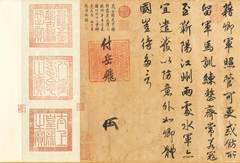 藉卿軍照管可更戒飭所
留軍馬訓練整齊常若寇
至蘄陽江州兩處水軍亦
宜遣發以防意外如卿體
國豈待多言
付岳飛